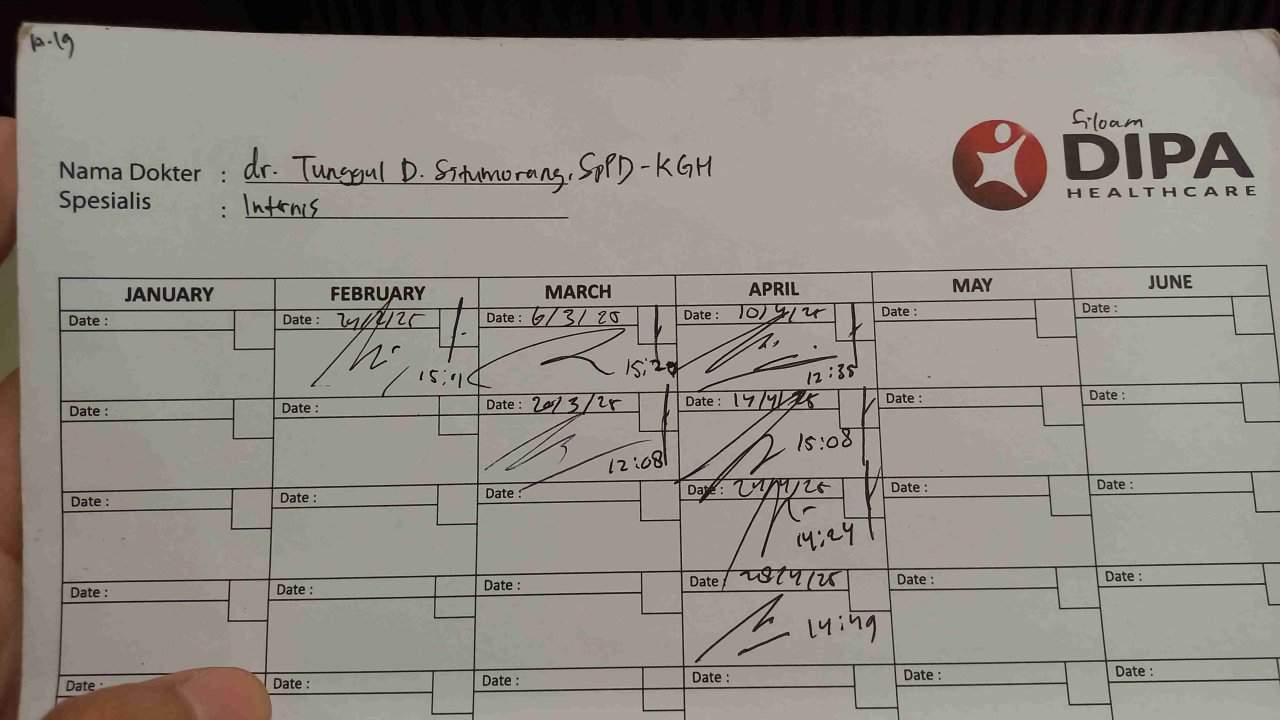 12-19
Siloam
DIPA
HEALTHCARE
Nama Dokter : dr. Tunggul D. Situmorang, SpPD-KGH
Spesialis : Internis
JANUARY FEBRUARY MARCH APRIL MAY JUNE
Date : Date : 24/2/25 Date : 6/3/25 Date : 10/4/25 Date : Date :
15:20 12:35
Date : Date : Date : 20/3/25 Date : 14/4/25 Date : Date :
12:08 15:08
Date : Date : Date : Date : 24/4/25 Date : Date :
14:24
Date : Date : Date : Date 28/4/25 Date : Date :
14:49
Date : Date : Date : Date : Date : Date :